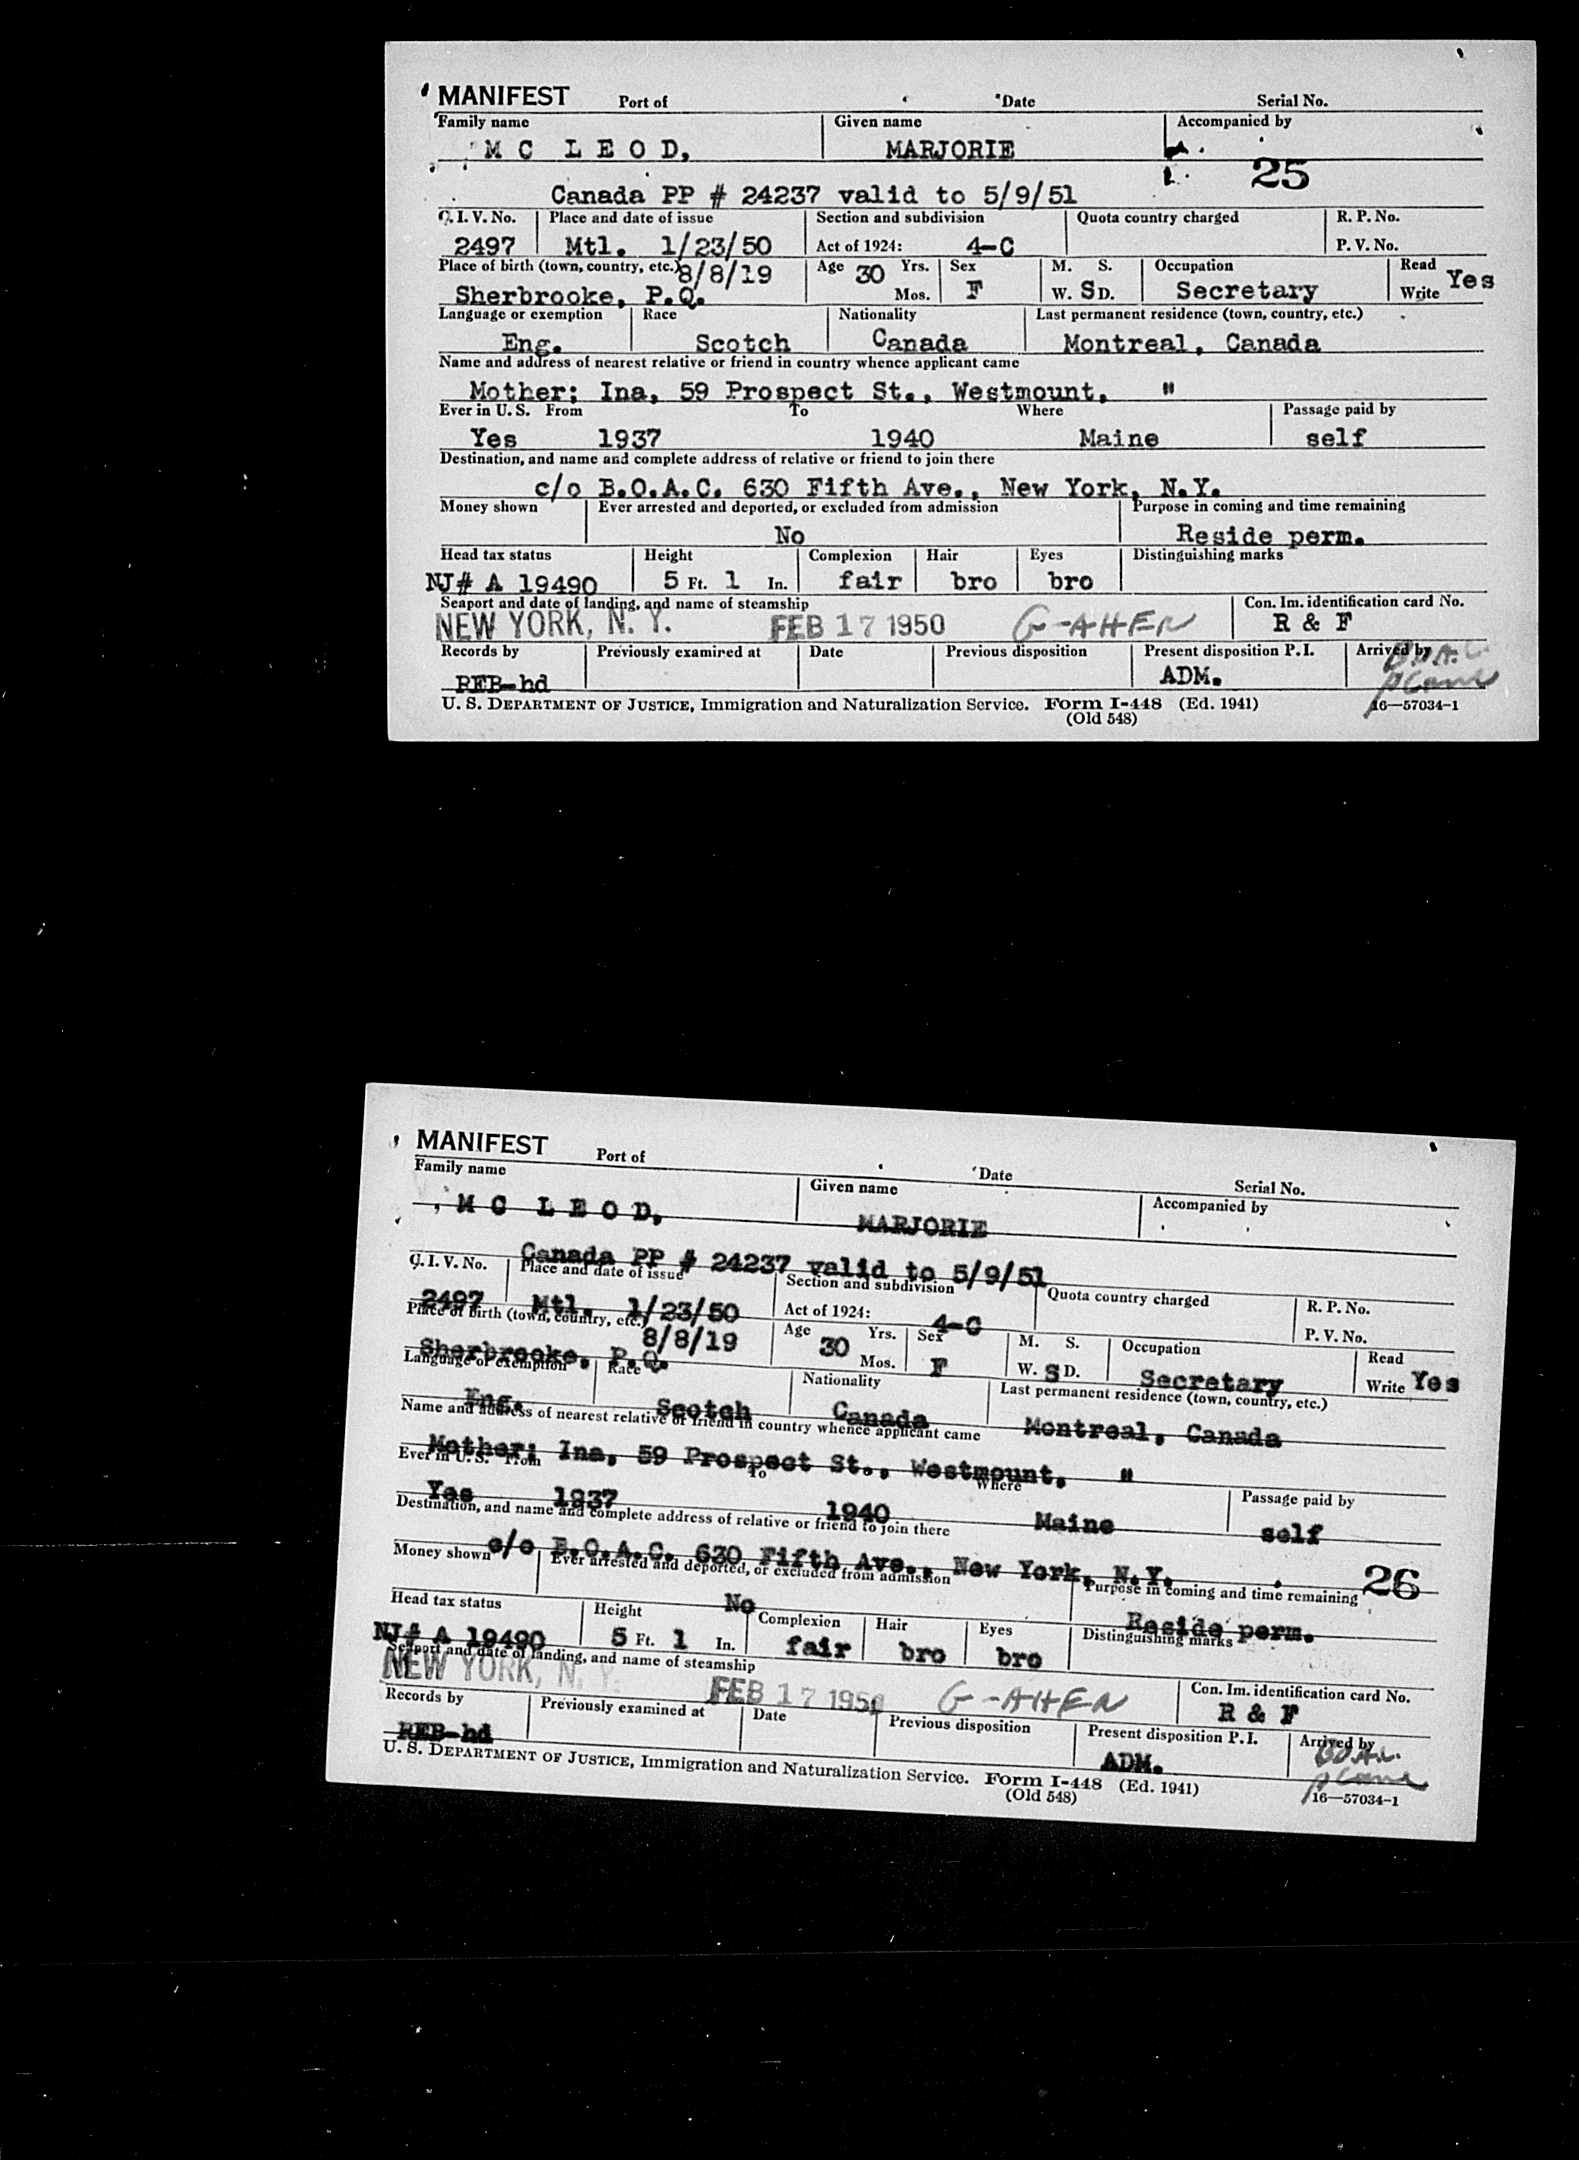 MANIFEST Port of Date Serial No.
Family name Given name Accompanied by
M C L E O D, MARJORIE
25
Canada PP # 24237 valid to 5/9/51
C. I. V. No. Place and date of issue Section and subdivision Quota country charged R. P. No.
2497 Mtl. 1/23/50 Act of 1924: 4-C P. V. No.
Place of birth (town, country, etc.) 8/8/19 Age 30 Yrs. Sex M. S. Occupation Read Yes
Sherbrooke, P.Q. Mos. F W. S D. Secretary Write
Language or exemption Race Nationality Last permanent residence (town, country, etc.)
Eng. Scotch Canada Montreal, Canada
Name and address of nearest relative or friend in country whence applicant came
Mother; Ina, 59 Prospect St., Westmount, "
Ever in U. S. From To Where Passage paid by
Yes 1937 1940 Maine self
Destination, and name and complete address of relative or friend to join there
c/o B.O.A.C. 630 Fifth Ave., New York, N.Y.
Money shown Ever arrested and deported, or excluded from admission Purpose in coming and time remaining
No Reside perm.
Head tax status Height Complexion Hair Eyes Distinguishing marks
NJ# A 19490 5 Ft. 1 In. fair bro bro
Seaport and date of landing, and name of steamship Con. Im. identification card No.
NEW YORK, N. Y. FEB 17 1950 G-AHEN R & F
Records by Previously examined at Date Previous disposition Present disposition P. I. Arrived by B.O.A.C.
REB-hd ADM. plane
U. S. DEPARTMENT OF JUSTICE, Immigration and Naturalization Service. Form I-448 (Ed. 1941) 16—57034-1
(Old 548)
MANIFEST Port of Date Serial No.
Family name Given name Accompanied by
M C L E O D, MARJORIE
Canada PP # 24237 valid to 5/9/51
C. I. V. No. Place and date of issue Section and subdivision Quota country charged R. P. No.
2497 Mtl. 1/23/50 Act of 1924: 4-C P. V. No.
Place of birth (town, country, etc.) 8/8/19 Age 30 Yrs. Sex M. S. Occupation Read Yes
Sherbrooke, P.Q. Mos. F W. S D. Secretary Write
Language or exemption Race Nationality Last permanent residence (town, country, etc.)
Eng. Scotch Canada Montreal, Canada
Name and address of nearest relative or friend in country whence applicant came
Mother; Ina, 59 Prospect St., Westmount, "
Ever in U. S. From To Where Passage paid by
Yes 1937 1940 Maine self
Destination, and name and complete address of relative or friend to join there
c/o B.O.A.C. 630 Fifth Ave., New York, N.Y. 26
Money shown Ever arrested and deported, or excluded from admission Purpose in coming and time remaining
No Reside perm.
Head tax status Height Complexion Hair Eyes Distinguishing marks
NJ# A 19490 5 Ft. 1 In. fair bro bro
Seaport and date of landing, and name of steamship Con. Im. identification card No.
NEW YORK, N. Y. FEB 17 1950 G-AHEN R & F
Records by Previously examined at Date Previous disposition Present disposition P. I. Arrived by B.O.A.C.
REB-hd ADM. plane
U. S. DEPARTMENT OF JUSTICE, Immigration and Naturalization Service. Form I-448 (Ed. 1941) 16—57034-1
(Old 548)